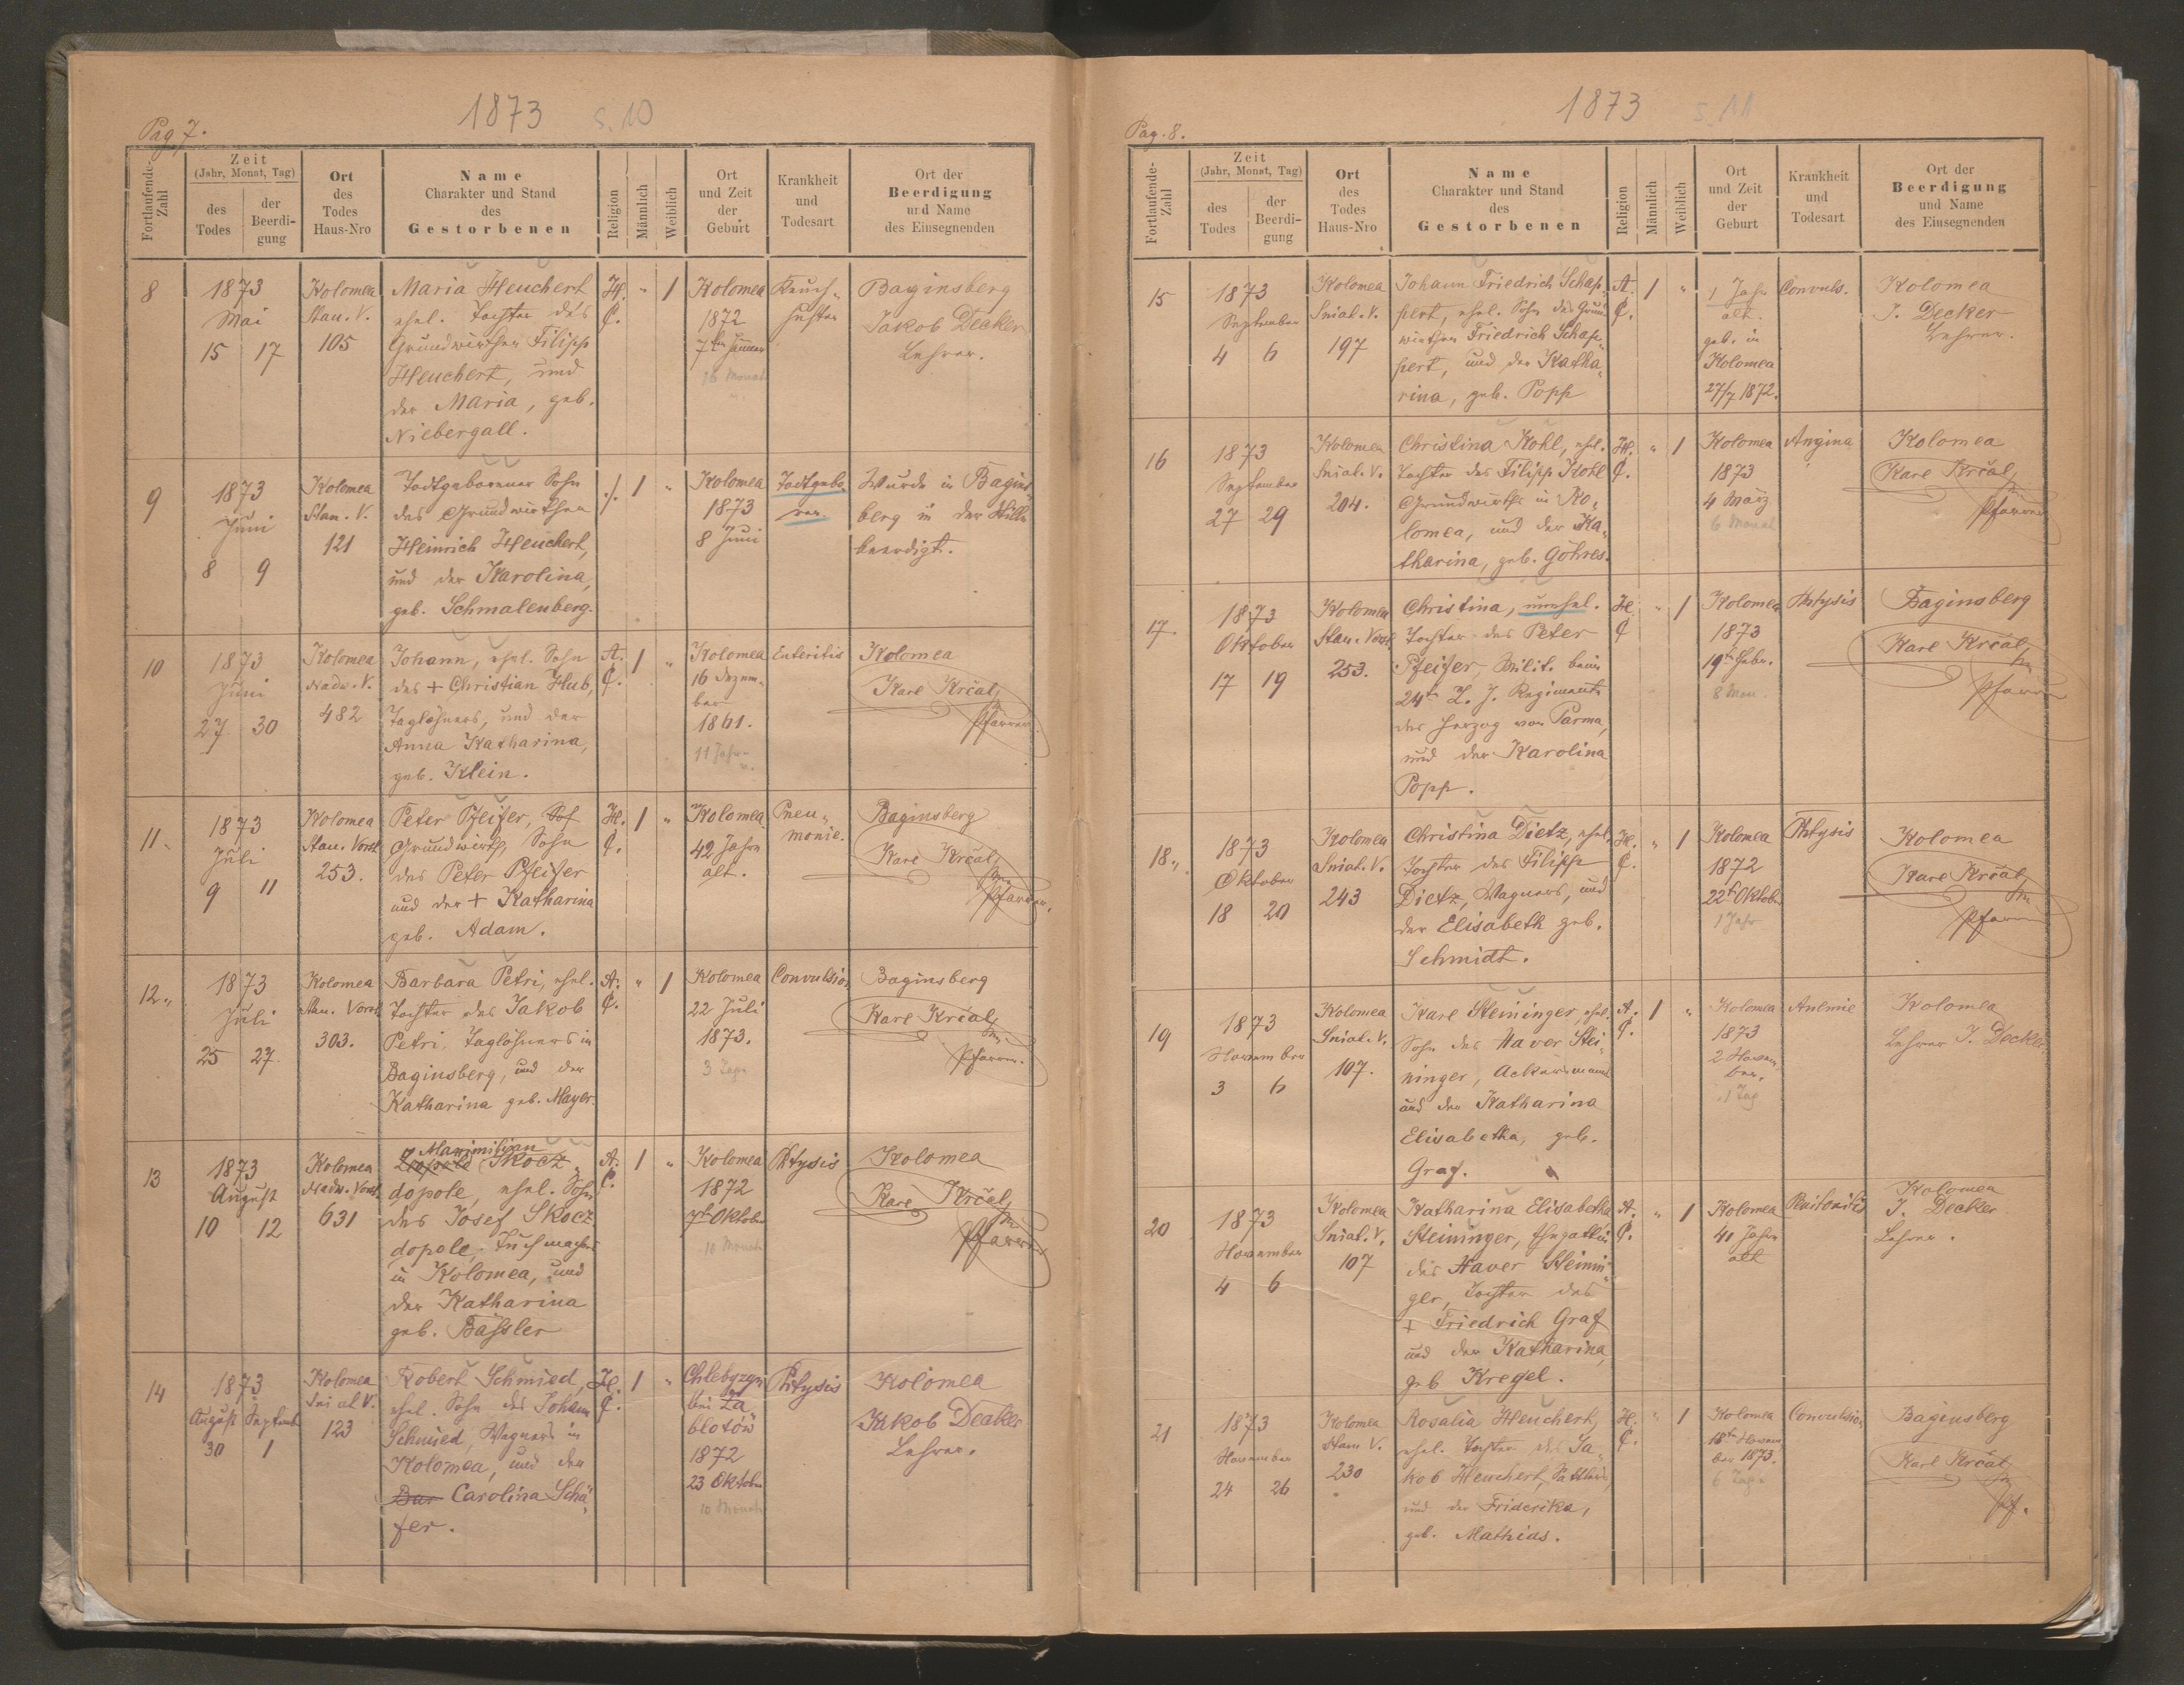 Pag 7.
1873
s. 10
Fortlaufende-Zahl
Zeit
(Jahr, Monat, Tag)
des Todes
der Beerdigung
Ort des Todes Haus-Nro
Name
Charakter und Stand
des
Gestorbenen
Religion
Männlich
Weiblich
Ort und Zeit der Geburt
Krankheit und Todesart
Ort der
Beerdigung
und Name
des Einsegnenden
8
1873
Mai
15 17
Kolomea
Stan. V.
105
Maria Heuchert
ehel. Tochter des
Grundwirthen Filipp
Heuchert, und
der Maria, geb.
Niebergall.
H.
C.
" 1
Kolomea
1872
7ten Jänner
16 Monat
Keuch-
husten
Baginsberg
Jakob Decker
Lehrer.
9
1873
Juni
8 9
Kolomea
Stan. V.
121
Todtgeborener Sohn
des Grundwirthen
Heinrich Heuchert,
und der Karolina,
geb. Schmalenberg.
./.
1 "
Kolomea
1873
8 Juni
Todtgebo-
ren.
Wurde in Bagins-
berg in der Stille
beerdigt.
10
1873
Juni
27 30
Kolomea
Nadw. V.
482
Johann, ehel. Sohn
des + Christian Hub,
Taglöhners, und der
Anna Katharina,
geb. Klein.
A.
C.
1 "
Kolomea
16 Dezem-
ber
1861.
11 Jahre
Enteritis
Kolomea
Karl Krčal,
Pfarrer.
11.
1873
Juli
9 11
Kolomea
Stan. Vorst
253.
Peter Pfeifer, Sof
Grundwirth, Sohn
des Peter Pfeifer
und der + Katharina
geb. Adam.
H.
C.
1 "
Kolomea
42 Jahre
alt.
Pneu-
monie.
Baginsberg
Karl Krčal,
Pfarrer.
12.
1873
Juli
25 27
Kolomea
Stan. Vorst
303.
Barbara Petri, ehel.
Tochter des Jakob
Petri, Taglöhners in
Baginsberg, und der
Katharina geb. Mayer.
A.
C.
" 1
Kolomea
22 Juli
1873.
3 Tage
Convulsion
Baginsberg
Karl Krčal,
Pfarrer.
13
1873
August
10 12
Kolomea
Nadw. Vorst.
631
Maximilian
Leopold Skocz-
dopole, ehel. Sohn
des Josef Skocz
dopole, Tuchmachers
in Kolomea, und
der Katharina
geb. Bäßler
A.
C.
1 "
Kolomea
1872
7ten Oktober
10 Monate
Phtysis
Kolomea
Karl Krčal,
Pfarrer
14
1873
August September
30 1
Kolomea
Sniat V.
123
Robert Schmied,
ehel. Sohn des Johann
Schmied, Wagners in
Kolomea, und der
Bar Carolina Schä-
fer.
H.
C.
1 "
Chlebyzyn
bei Za
blotów
1872
23 Oktober
10 Monate
Phtysis
Kolomea
Jakob Decker
Lehrer.
Pag. 8.
1873
s. 11
Fortlaufende-Zahl
Zeit
(Jahr, Monat, Tag)
des Todes
der Beerdigung
Ort des Todes Haus-Nro
Name
Charakter und Stand
des
Gestorbenen
Religion
Männlich
Weiblich
Ort und Zeit der Geburt
Krankheit und Todesart
Ort der
Beerdigung
und Name
des Einsegnenden
15
1873
September
4 6
Kolomea
Sniat. V.
197
Johann Friedrich Schap-
pert, ehel. Sohn des Grund-
wirthen Friedrich Schap-
pert, und der Katha-
rina, geb. Popp
A.
C.
1 "
1 Jahr
alt.
geb. in
Kolomea
27/7 1872.
Convuls.
Kolomea
J. Decker
Lehrer.
16
1873
September
27 29
Kolomea
Sniat. V.
204.
Christina Kohl, ehel.
Tochter des Filipp Kohl
Grundwirths in Ko-
lomea, und der Ka-
tharina, geb. Göhres.
H.
C.
" 1
Kolomea
1873
4 März
6 Monat
Angina
Kolomea
Karl Krčal,
Pfarrer
17.
1873
Oktober
17 19
Kolomea
Stan. Vorst
253.
Christina, unehel.
Tochter des Peter
Pfeifer, Milit. beim
24ten L. J. Regimente
des Herzog von Parma,
und der Karolina
Popp.
H.
C
" 1
Kolomea
1873
19ten Febr.
8 Mon.
Phtysis
Baginsberg
Karl Krčal,
Pfarrer
18.
1873
Oktober
18 20
Kolomea
Sniat. V.
243
Christina Dietz, ehel.
Tochter des Filipp
Dietz, Wagners, und
der Elisabeth geb.
Schmidt.
H.
C.
" 1
Kolomea
1872
22ten Oktober
1 Jahr
Phtysis
Kolomea
Karl Krčal,
Pfarrer
19
1873
November
3 6
Kolomea
Sniat. V.
107.
Karl Steininger, ehel.
Sohn des Xaver Stei-
ninger, Ackersmanns
und der Katharina
Elisabetha, geb.
Graf.
A.
C.
1 "
Kolomea
1873
2 Novem-
ber.
1 Tag
Anemie
Kolomea
Lehrer J. Decker.
20
1873
November
4 6
Kolomea
Sniat. V.
107
Katharina Elisabetha
Steininger, Ehegattin
des Xaver Steinin-
ger, Tochter des
+ Friedrich Graf
und der Katharina,
geb Kregel.
A.
C.
" 1
Kolomea
41 Jahre
alt
Peritonitis
Kolomea
J. Decker
Lehrer.
21
1873
November
24 26
Kolomea
Stan V.
230
Rosalia Heuchert,
ehel. Tochter des Ja-
kob Heuchert, Sattlers,
und der Friderika,
geb. Mathias.
H.
C.
" 1
Kolomea
18ten Novem
ber 1873.
6 Tage
Convulsion
Baginsberg
Karl Krčal,
Pf.